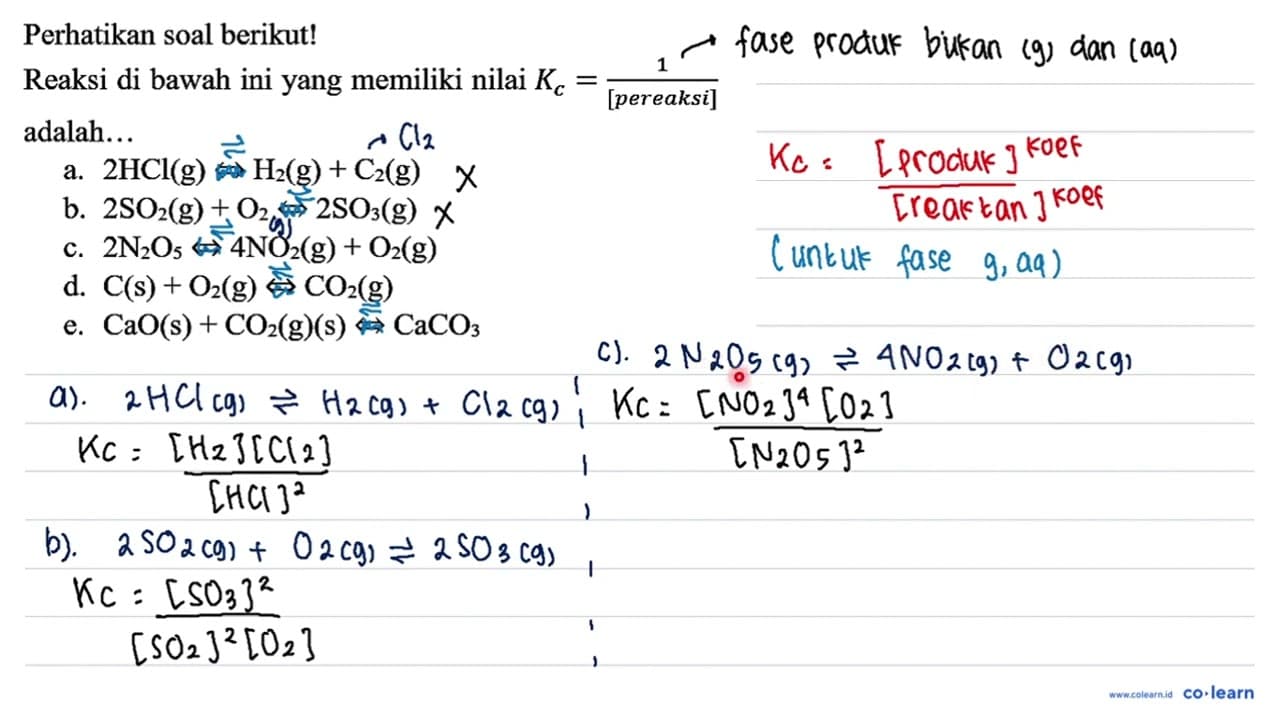 Perhatikan soal berikut!
Reaksi di bawah ini yang memiliki nilai K_c = 1/[pereaksi]
→ fase produk bukan (g) dan (aq)
adalah...
→ Cl2
a. 2HCl(g) ⇌ H₂(g) + C₂(g) X
b. 2SO₂(g) + O₂ (g) ⇌ 2SO₃(g) X
c. 2N₂O₅ ⇌ 4NO₂(g) + O₂(g)
d. C(s) + O₂(g) ⇌ CO₂(g)
e. CaO(s) + CO₂(g)(s) ⇌ CaCO₃
Kc = [produk]^koef
[reaktan]^koef
(untuk fase g, aq)
a). 2HCl(g) ⇌ H2(g) + Cl2(g)
Kc = [H2][Cl2]
[HCl]²
b). 2SO2(g) + O2(g) ⇌ 2SO3(g)
Kc = [SO3]²
[SO2]²[O2]
c). 2N2O5(g) ⇌ 4NO2(g) + O2(g)
Kc = [NO2]⁴[O2]
[N2O5]²
www.colearn.id co·learn